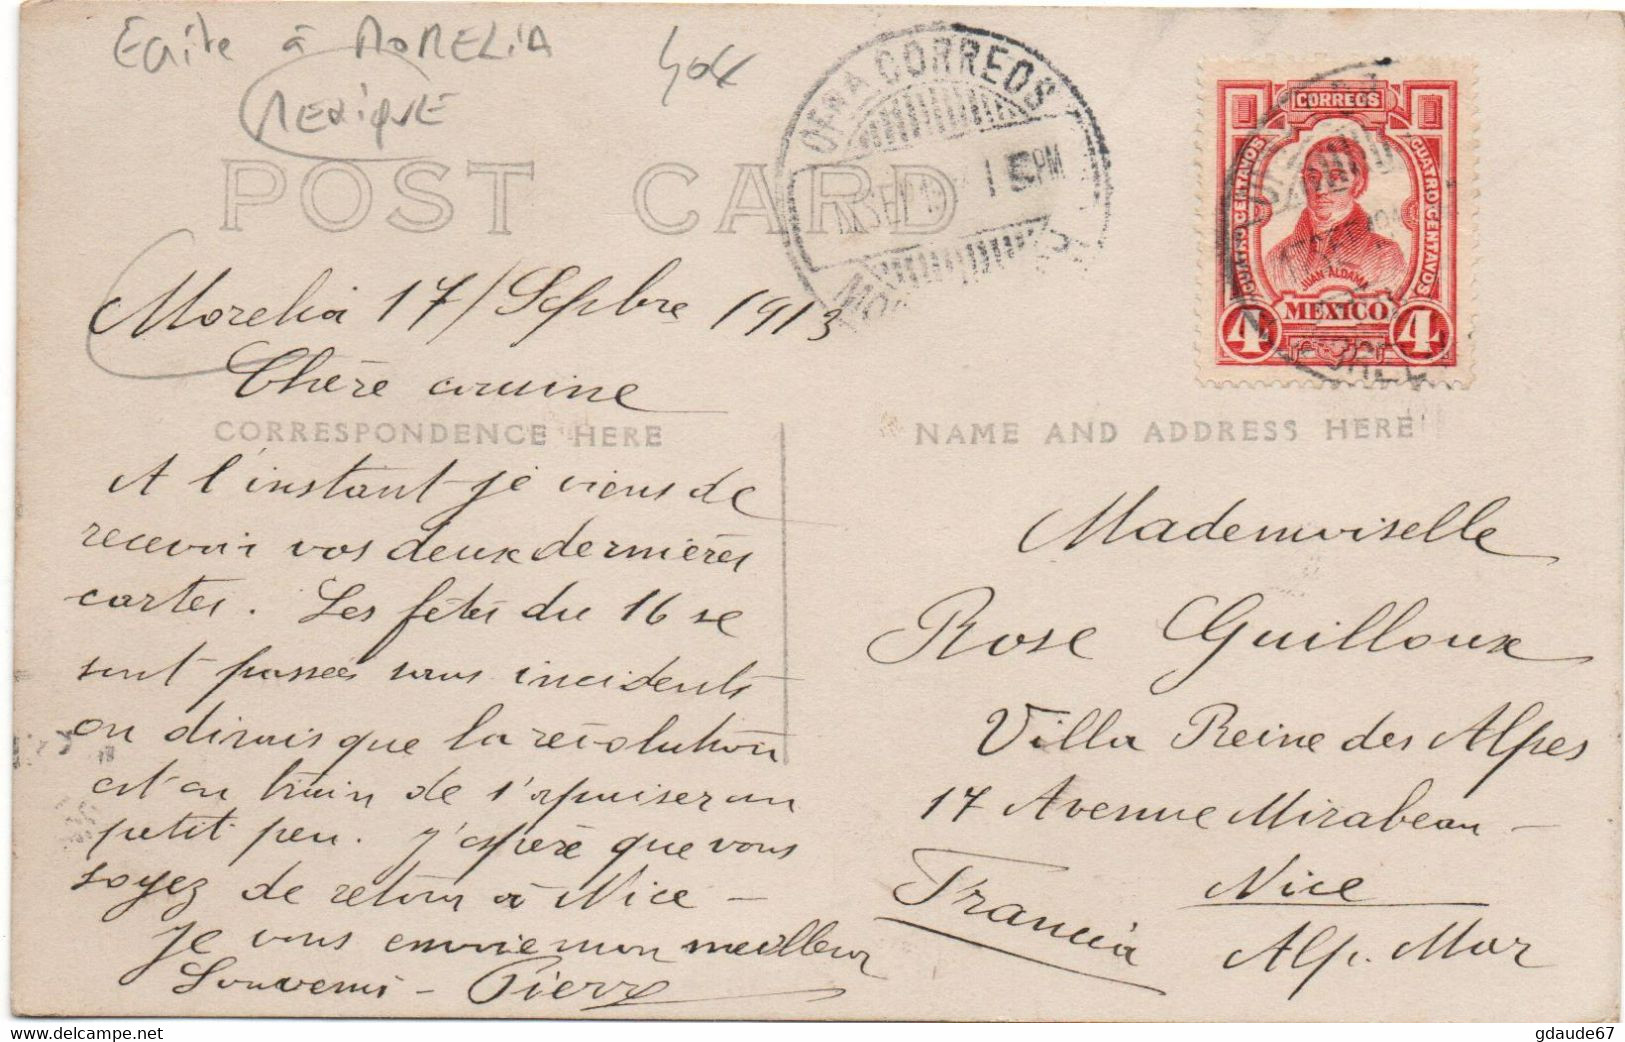 Ecrite à MORELIA
MEXIQUE
POST CARD
OFNA CORREOS
SEP 19
1 PM
CORREOS
CUATRO CENTAVOS
CUATRO CENTAVOS
JUAN ALDAMA
MEXICO
4 4
Morelia 17/Sepbre 1913
Chère amie
CORRESPONDENCE HERE
A l'instant je viens de
recevoir vos deux dernières
cartes. Les fêtes du 16 se
sont passées sans incidents
on dirait que la révolution
est en train de s'apaiser un
petit peu. J'espère que vous
soyez de retour à Nice -
Je vous envoie mon meilleur
Souvenir - Pierre
NAME AND ADDRESS HERE
Mademoiselle
Rose Guilloux
Villa Reine des Alpes
17 Avenue Mirabeau -
Nice
Francia
Alp. Mar
gdaude67